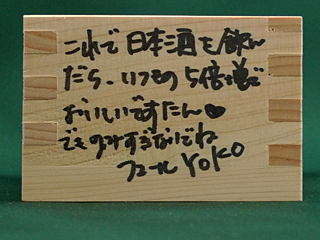 これで日本酒を飲ん
だら、いつもの5倍増で
おいしいですたん♥
でものみすぎないでね
フエールYOKO